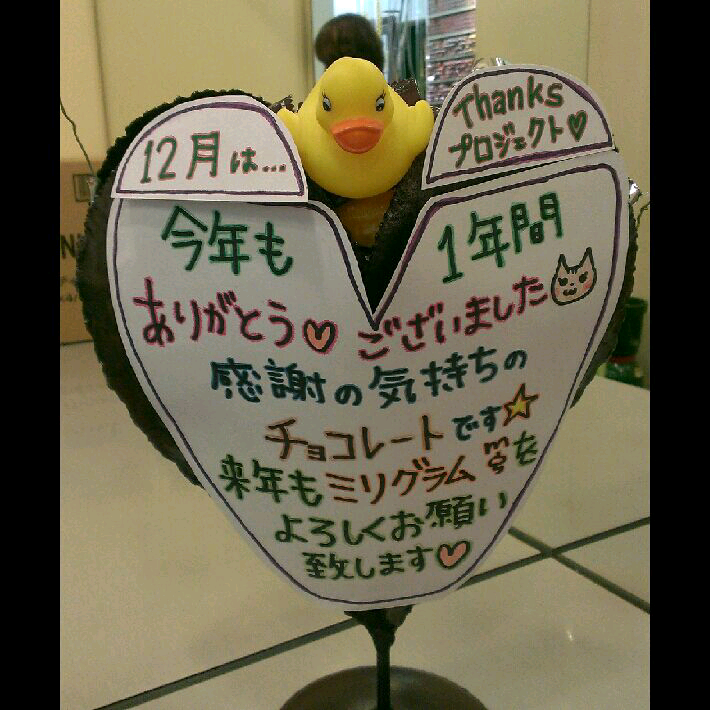 12月は…
Thanks
プロジェクト♡
今年も
1年間
ありがとう♡
ございました
感謝の気持ちの
チョコレートです☆
来年もミリグラムを
よろしくお願い
致します♡